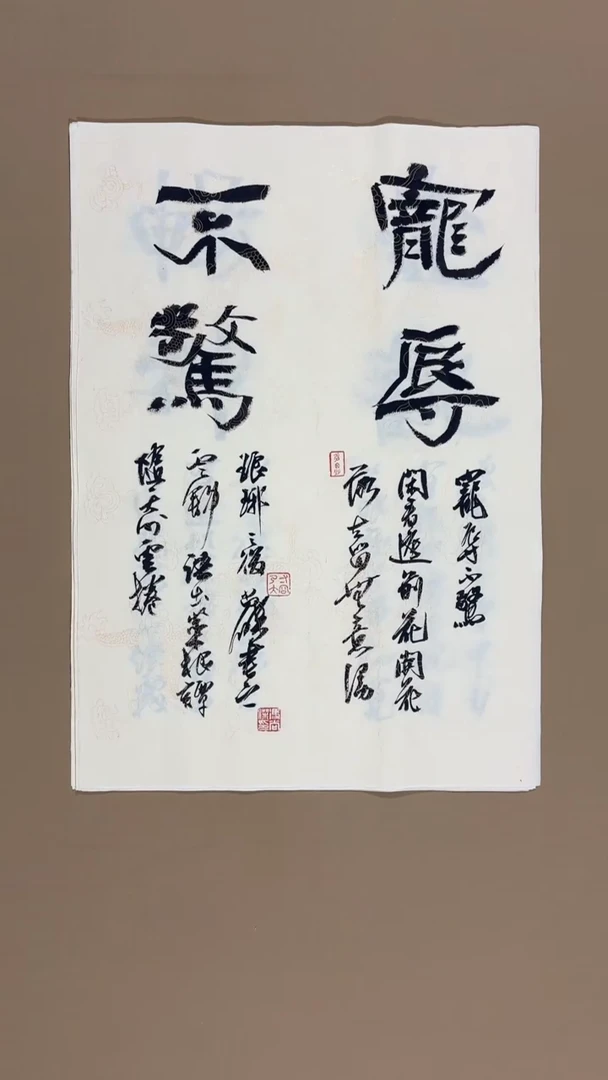 寵辱
不驚
寵辱不驚
閑看庭前花開花
落去留無意漫
隨天外雲捲
雲舒語出菜根譚
琅琊書之